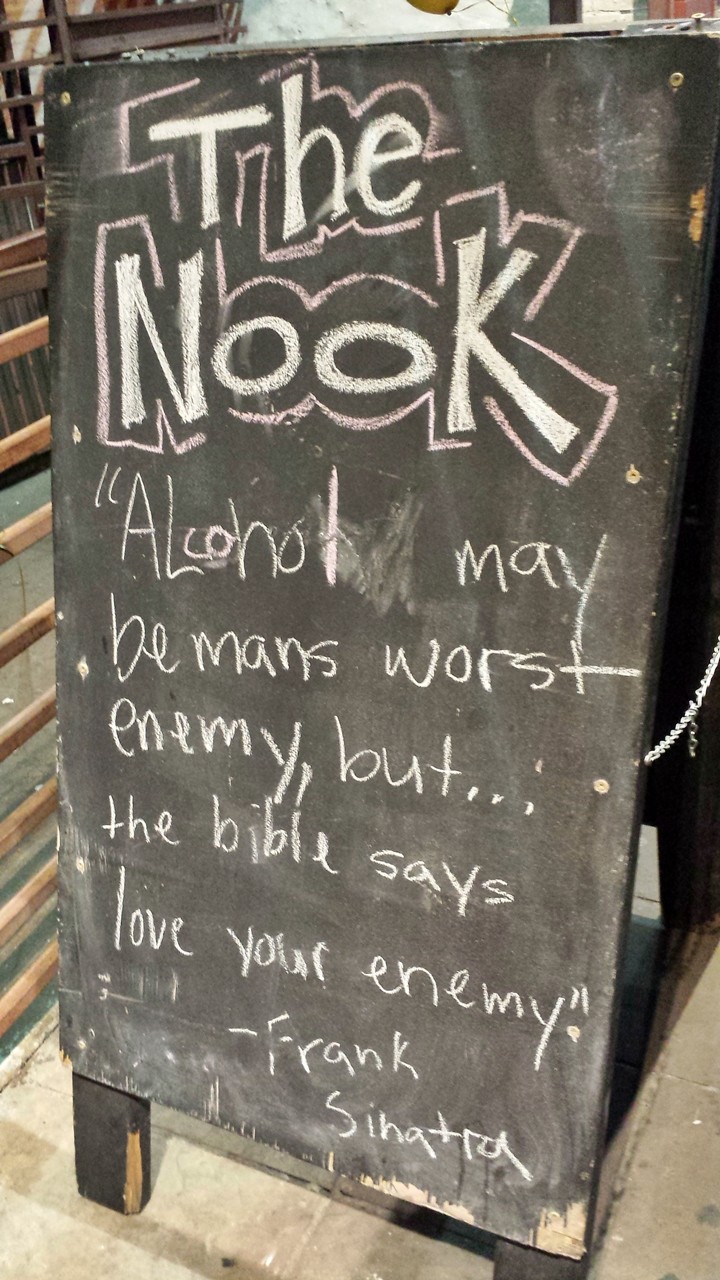 The
Nook
"Alcohol may
be mans worst
enemy, but...
the bible says
love your enemy"
-Frank
Sinatra